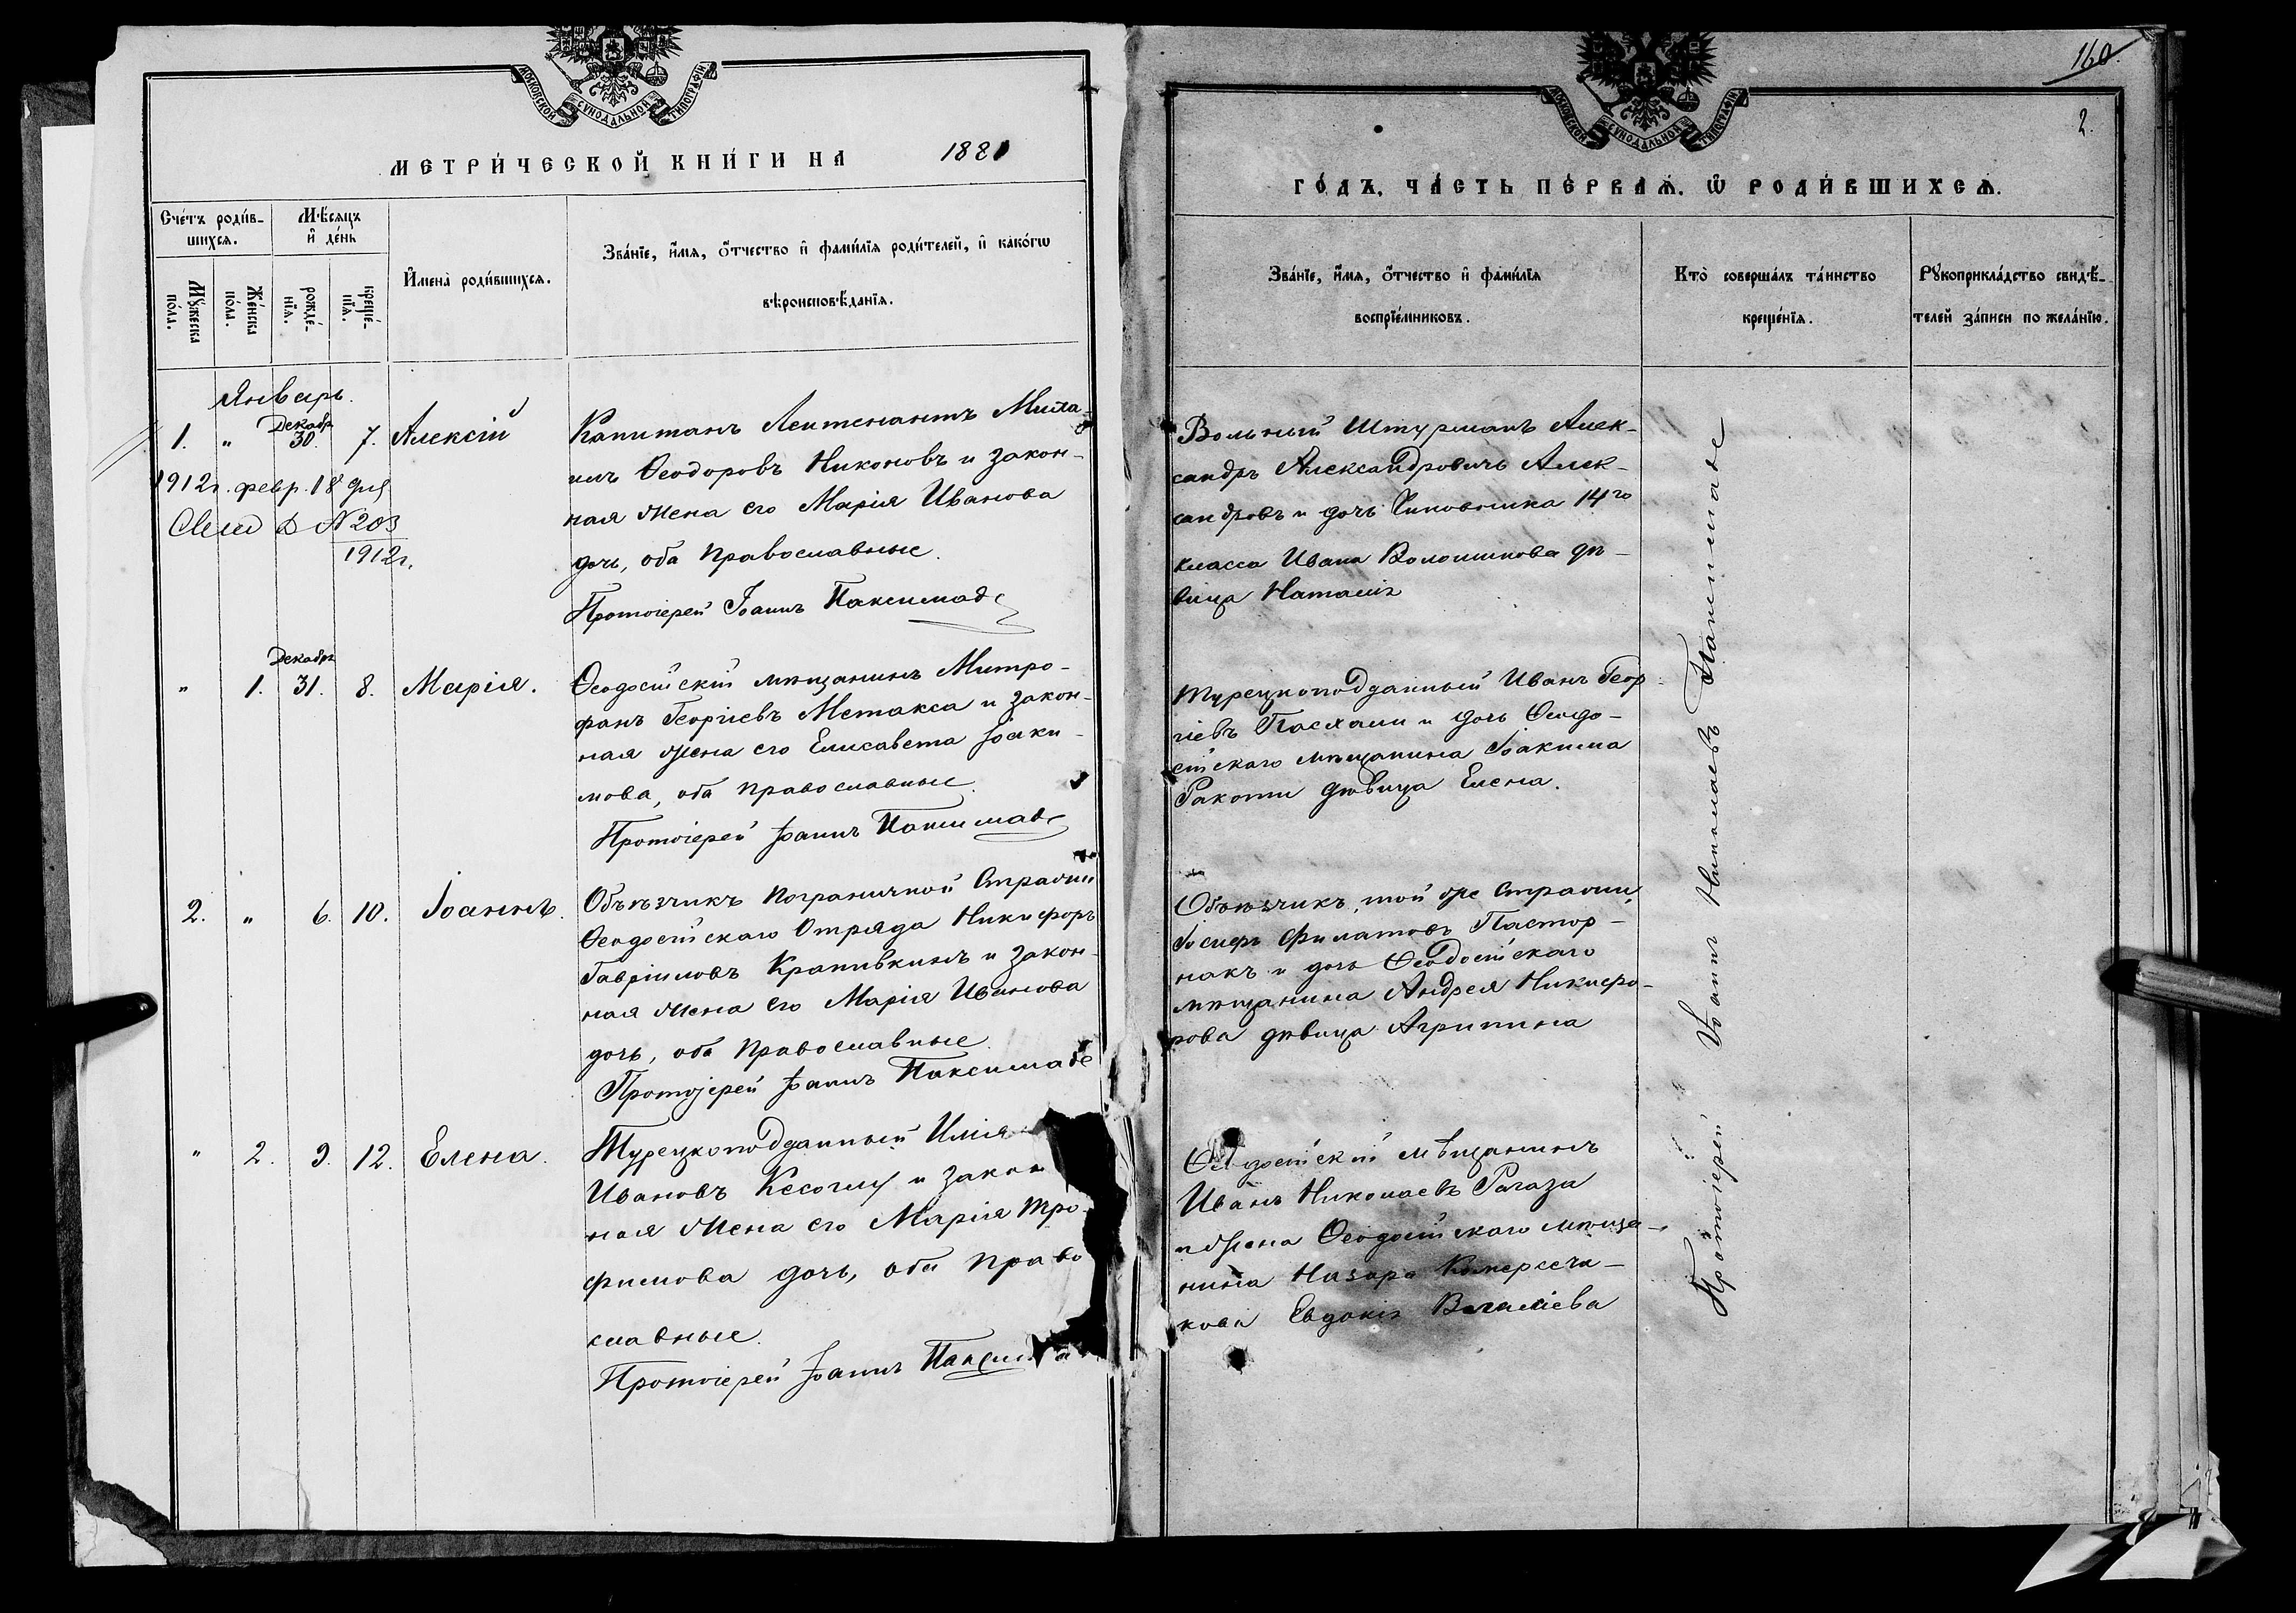 МОСКОВСКОЙ СѴНОДАЛЬНОЙ ТИПОГРАФІИ
МЕТРИ́ЧЕСКОЙ КНИ́ГИ НА 1881
Сче́тъ роди́в-
шихсѧ.
Мѣ́сѧцъ
и҆ де́нь
Мꙋ́жеска
по́ла.
Же́нска
по́ла.
рожде́-
нїѧ.
креще́-
нїѧ.
И҆мена̀ роди́вшихсѧ.
Зва́нїе, и҆́мѧ, ѻ҆́тчество и҆ фами́лїѧ роди́телей, и҆ како́гѡ
вѣроисповѣ́данїѧ.
Январь.
1. " Декабр 30. 7. Алексій
1912г. февр. 18 дня
N 203
1912г.
Капитанъ Лейтенантъ Миха-
илъ Ѳеодоровъ Никоновъ и закон-
ная жена его Марія Иванова
дочь, оба православные.
Протоіерей Іоаннъ Паксимаде
" 1. Декабря 31. 8. Марія.
Ѳеодосійскій мѣщанинъ Митро-
фанъ Георгіевъ Метакса и закон-
ная жена его Елисавета Іоаки-
мова, оба православные.
Протоіерей Іоаннъ Паксимаде
2. " 6. 10. Іоаннъ.
Объѣзчикъ Пограничной Стражи
Ѳеодосійскаго Отряда Никифоръ
Гавріиловъ Крапивкинъ и закон-
ная жена его Марія Иванова
дочь, оба православные.
Протоіерей Іоаннъ Паксимаде
" 2. 9. 12. Елена.
Турецкоподданный Илія
Ивановъ и закон
ная жена его Марія Тро-
фимова дочь, оба право
славные.
Протоіерей Іоаннъ Паксима
160.
2.
МОСКОВСКОЙ СѴНОДАЛЬНОЙ ТИПОГРАФІИ
ГО́ДЪ. ЧА́СТЬ ПЕ́РВАѦ. Ѡ҆ РОДИ́ВШИХСѦ.
Зва́нїе, и҆́мѧ, ѻ҆́тчество и҆ фами́лїѧ
воспрїе́мниковъ.
Кто̀ соверша́лъ та́инство
креще́нїѧ.
Рꙋкоприкла́дство свидѣ́-
телей за́писи по жела́нїю.
Вольный Штурманъ Алек-
сандръ Александровичъ Алек-
сандровъ и дочь Чиновника 14го
класса Ивана Волошинова дѣ-
вица Наталія
Турецкоподданный Иванъ Геор-
гіевъ Пасхали и дочь Ѳеодо-
сійскаго мѣщанина Іоакима
Ракоти дѣвица Елена.
Объѣзчикъ, той же Стражи,
Іосифъ Филатовъ Пастор-
накъ и дочь Ѳеодосійскаго
мѣщанина Андрея Никифо-
рова дѣвица Агрипина
Ѳеодосійскій мѣщанинъ
Иванъ Николаевъ Рагаза
и жена Ѳеодосійскаго мѣща-
нина Назара
Евдокія Василіева
Протоіерей Іоаннъ Николаевъ Паксимаде